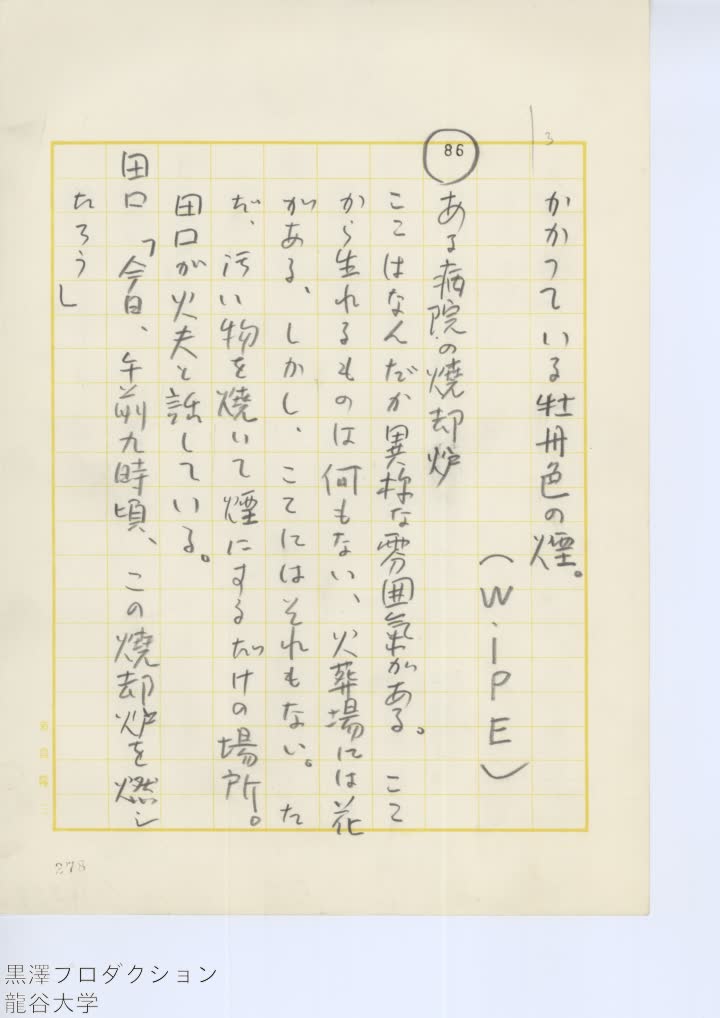 3
かかっている牡丹色の煙。
(WIPE)
86
ある病院の焼却炉
ここはなんだか異様な雰囲気がある。ここ
から生れるものは何もない、火葬場には花
がある、しかし、ここにはそれもない。た
だ、汚い物を焼いて煙にするだけの場所。
田口が火夫と話している。
田口「今日、午前九時頃、この焼却炉を燃し
たろう」
278
黒澤プロダクション
龍谷大学